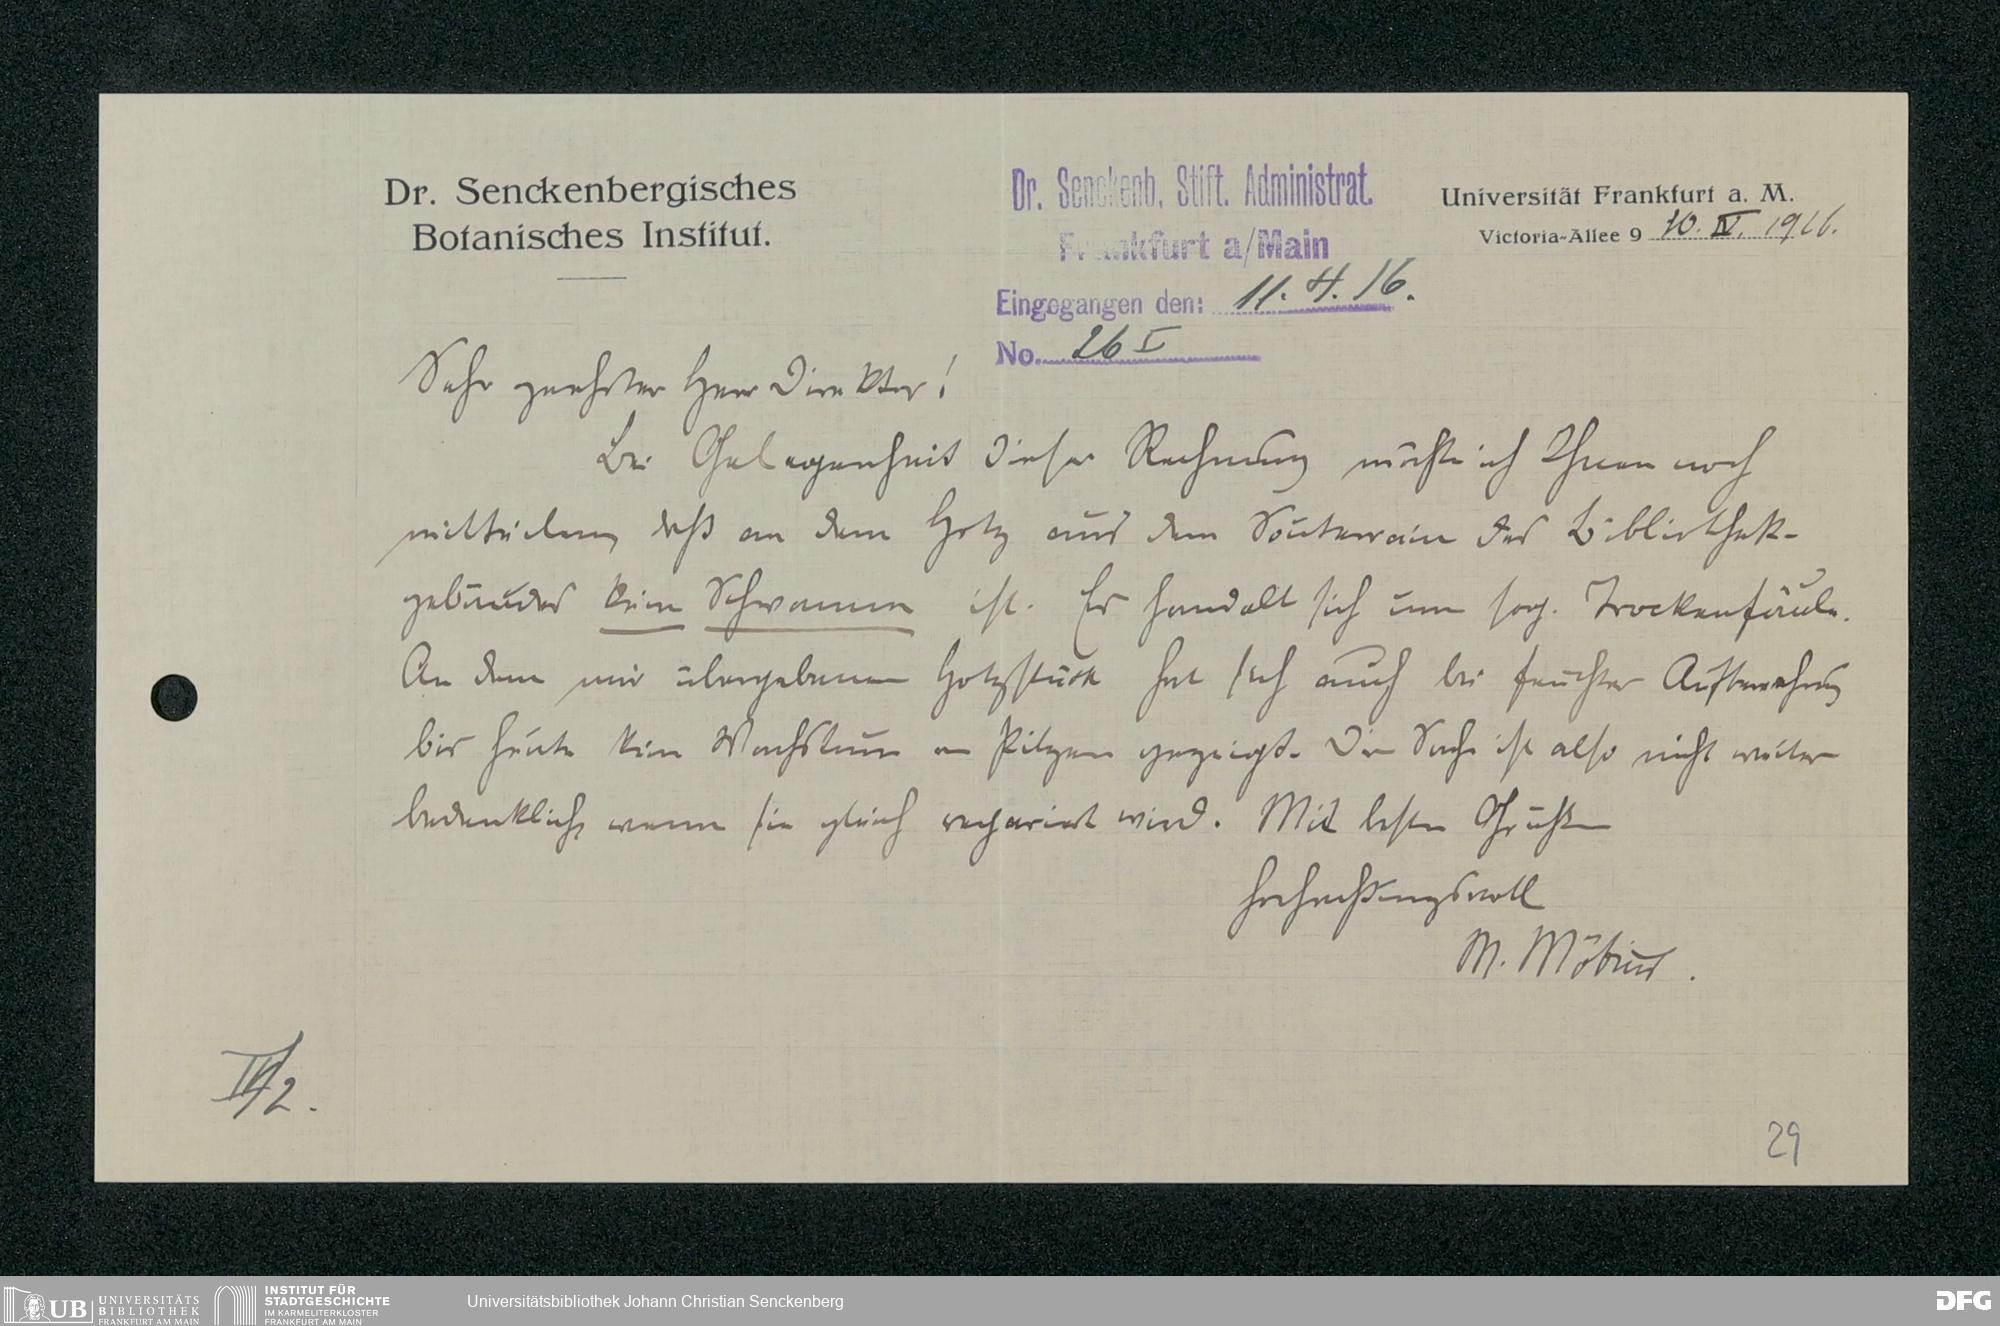 Dr. Senckenbergisches
Botanisches Institut.
Dr. Senckenb. Stift. Administrat.
Frankfurt a/Main
Eingegangen den: 11. 4. 16.
No. 26 I
Universität Frankfurt a. M.
Victoria-Allee 9 10. IV. 1916.
Sehr geehrter Herr Direktor!
Bei Gelegenheit dieser Rechnung möchte ich Ihnen noch
mitteilen, daß an dem Holz aus dem Souterrain des Bibliothek-
gebäudes kein Schwamm ist. Es handelt sich um sog. Trockenfäule.
An dem mir übergebenen Holzstück hat sich auch bei feuchter Aufbewahrung
bis heute kein Wachstum an Pilzen gezeigt. Die Sache ist also nicht weiter
bedenklich, wenn sie gleich repariert wird. Mit besten Grüßen
hochachtungsvoll
M. Möbius.
29
UB UNIVERSITÄTS
BIBLIOTHEK
FRANKFURT AM MAIN
INSTITUT FÜR
STADTGESCHICHTE
IM KARMELITERKLOSTER
FRANKFURT AM MAIN
Universitätsbibliothek Johann Christian Senckenberg
DFG